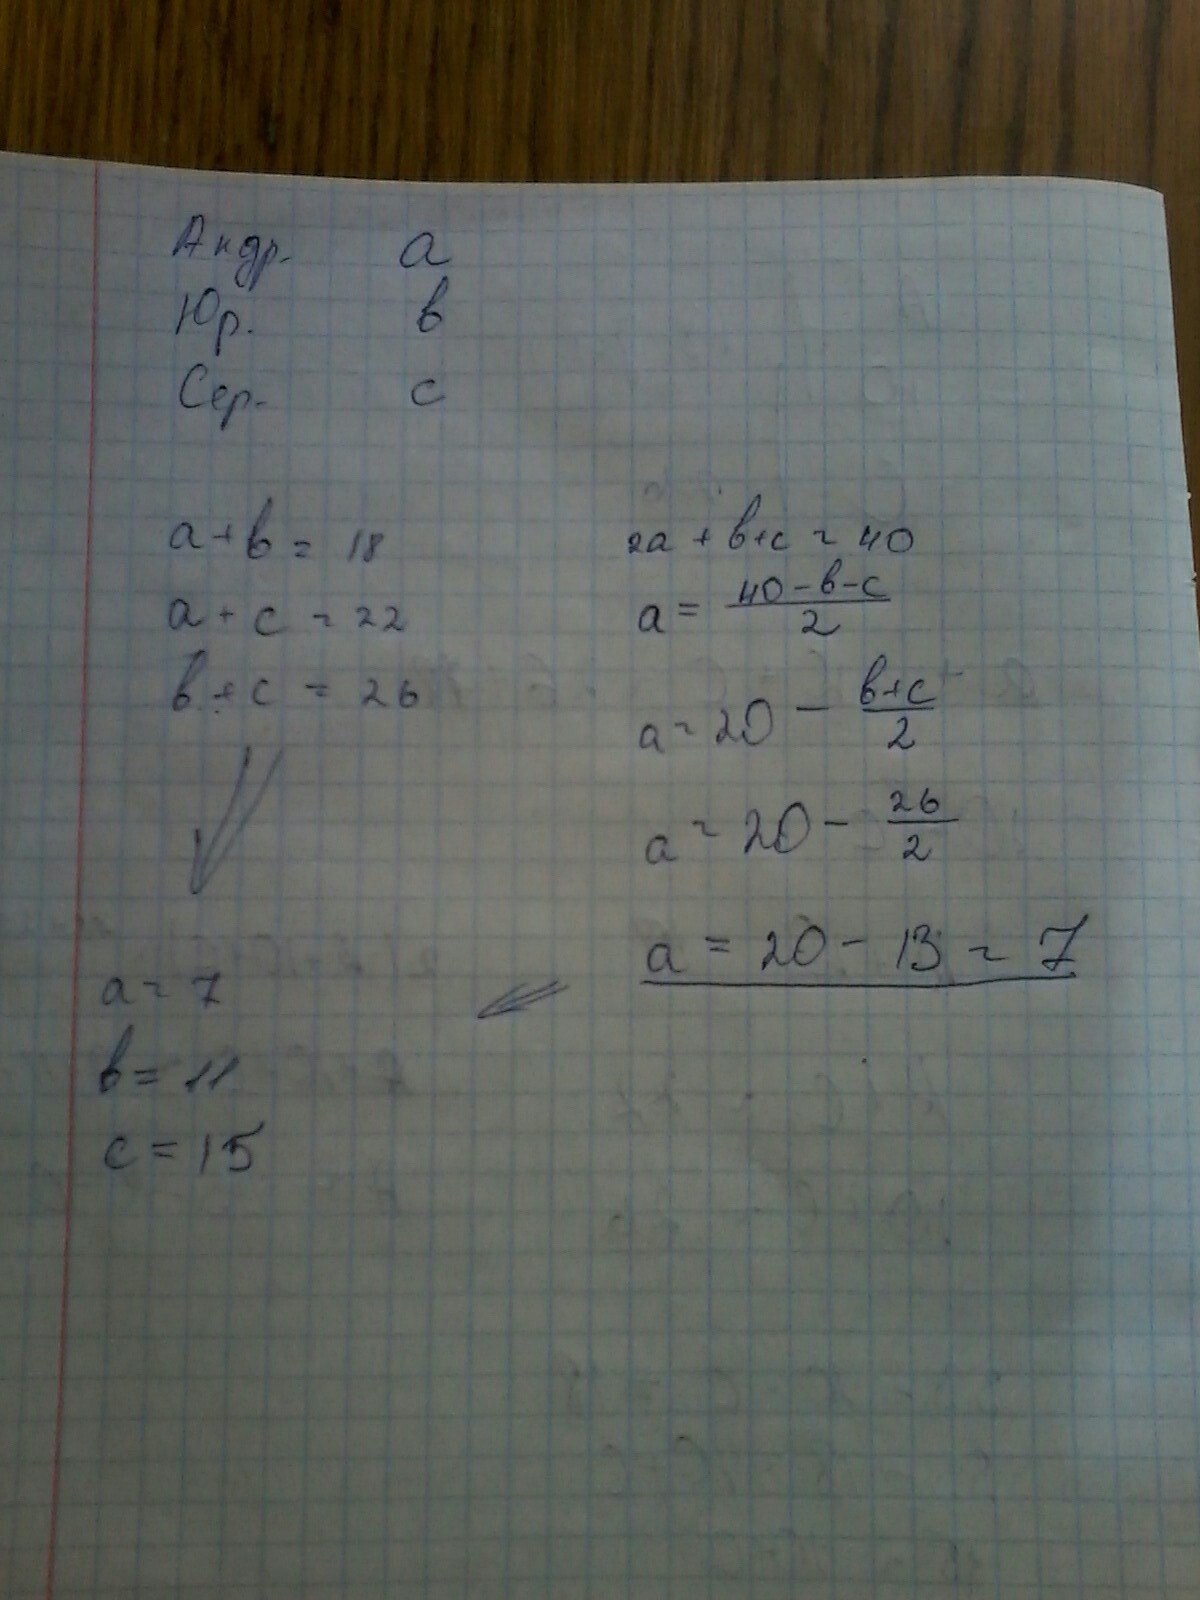 Андр. a
Юр. в
Сер. c
a+в = 18
a + c = 22
в + c = 26
2a + в+c = 40
a = (40-в-c)/2
a = 20 - (в+c)/2
a = 20 - 26/2
a = 20 - 13 = 7
a = 7
в = 11
c = 15